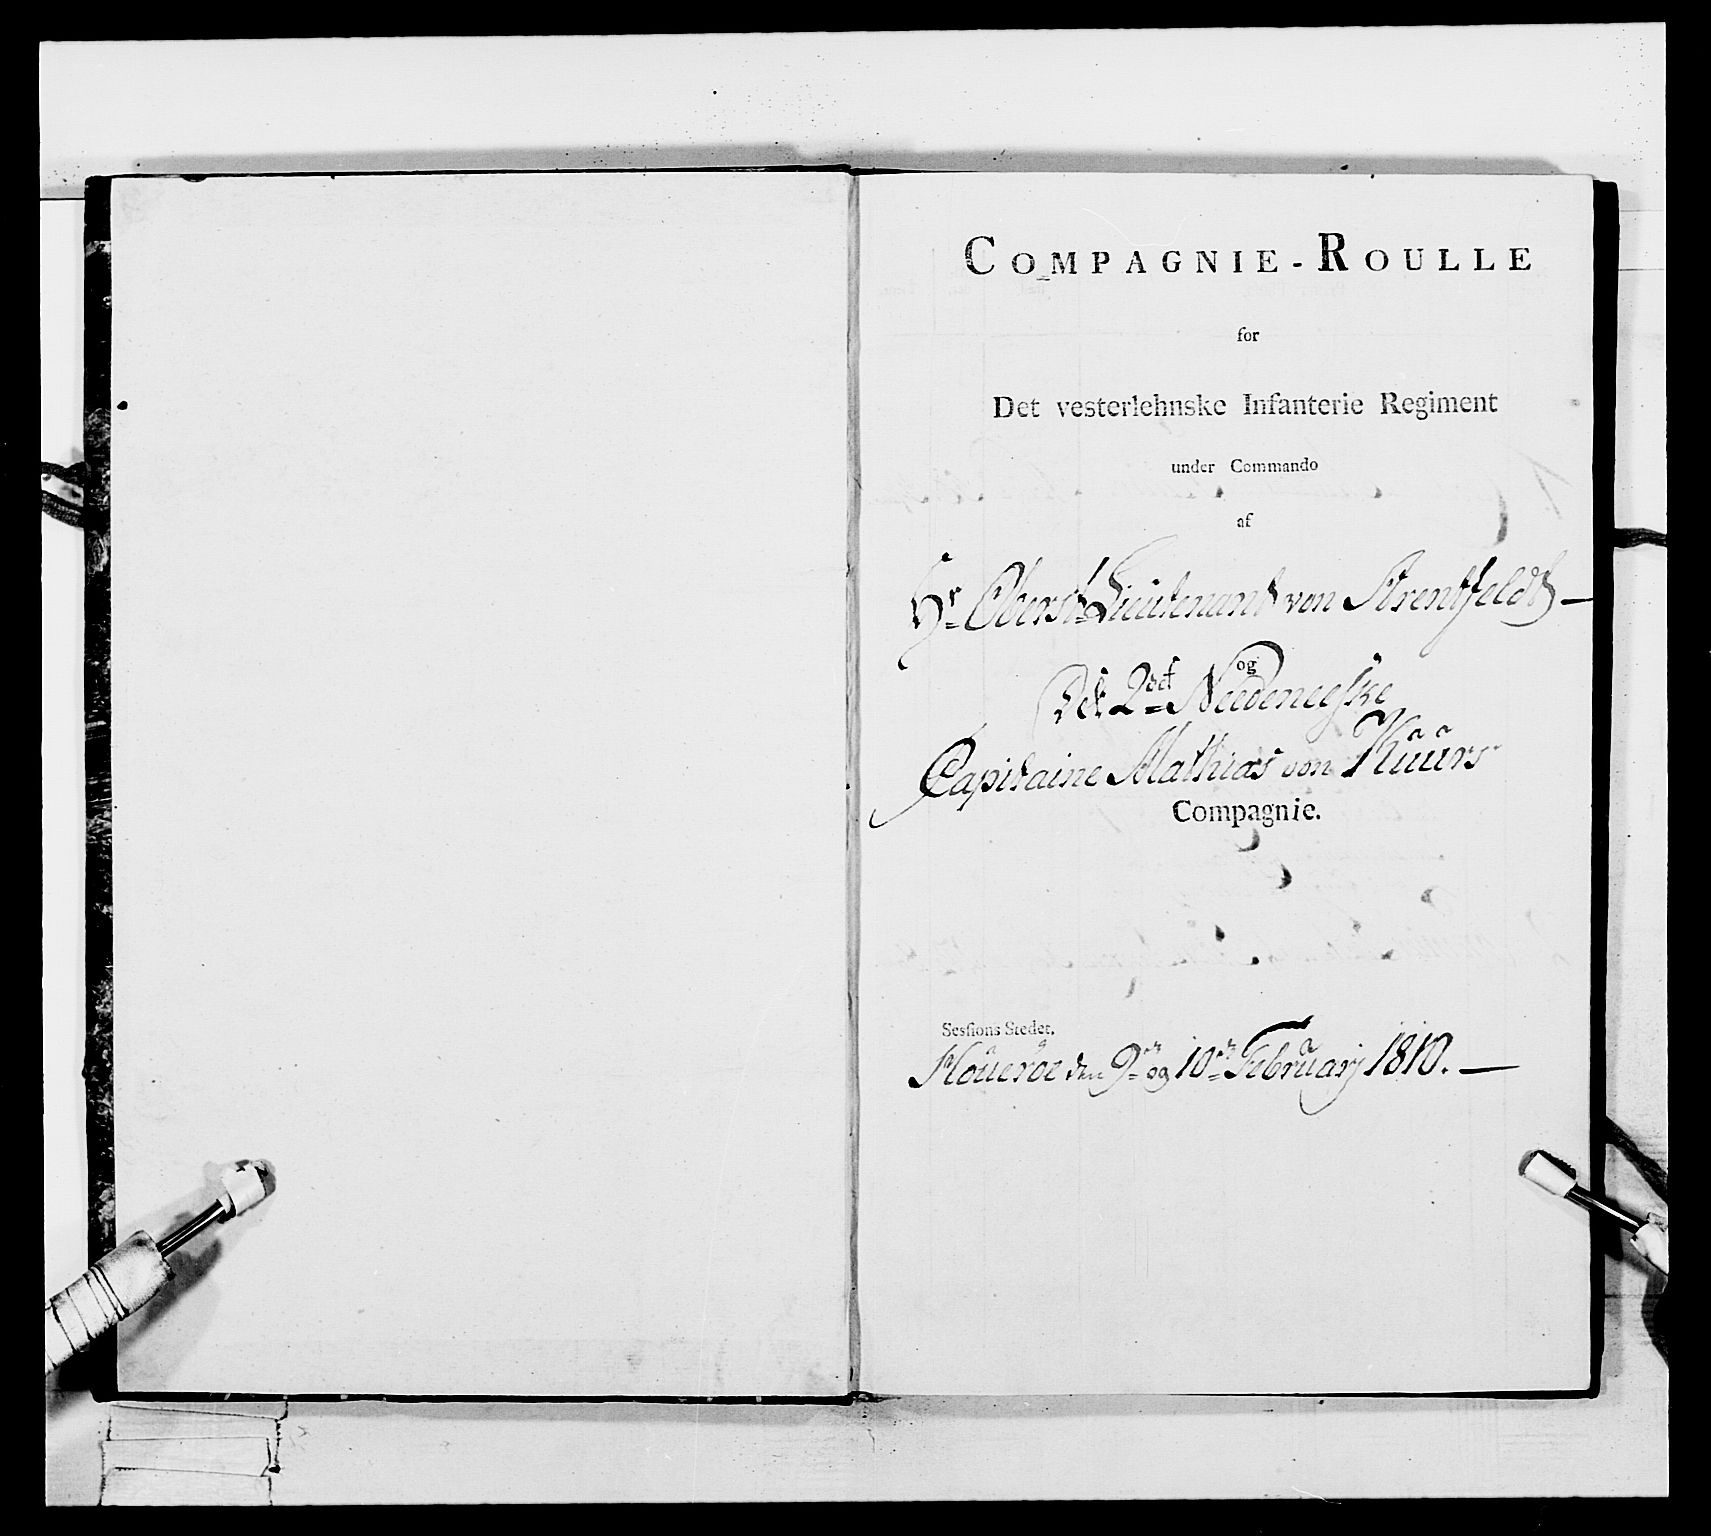 COMPAGNIE-ROULLE
for
Det vesterlehnske Infanterie Regiment
under Commando
af
Hr Oberst Lieutenant von Strentfeldt
og
Det 2det Needeneeske
Capitaine Mathias von Kuurs
Compagnie.
Sesſions Steder,
den 9de og 10de Februarj 1810.